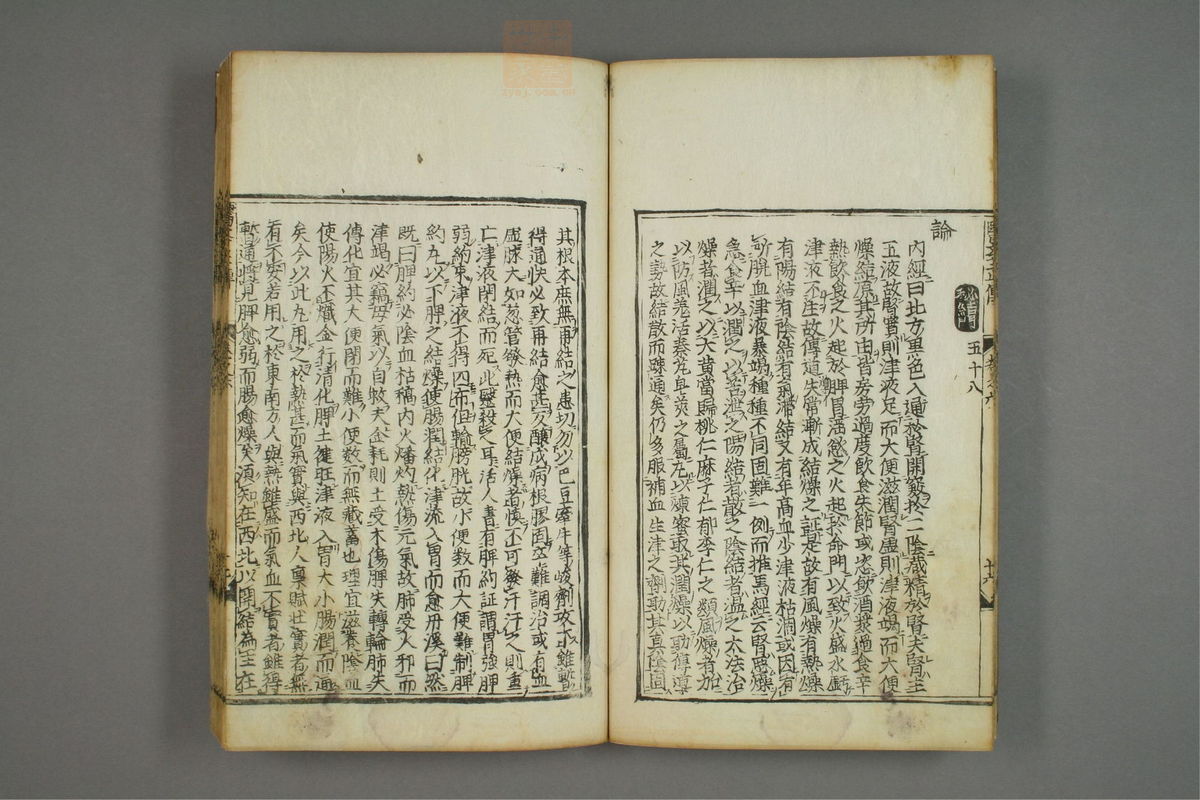 醫學正傳
卷之六
秘結門
五十八
論
內經曰北方黑色入通於腎開竅於二陰藏精於腎夫腎主
五液故腎實則津液足而大便滋潤腎虛則津液竭而大便
燥結原其所由皆房勞過度飲食失節或恣飲酒漿過食辛
熱飲食之火起於脾胃淫慾之火起於命門以致火盛水虧
津液不生故傳道失常漸成結燥之証是故有風燥有熱燥
有陽結有陰結有氣滯結又有年高血少津液枯涸或因有
所脫血津液暴竭種種不同固難一例而推焉經云腎惡燥
急食辛以潤之以苦泄之陽結者散之陰結者温之大法治
燥者潤之以大黃當歸桃仁麻子仁郁李仁之類風燥者加
以防風羌活秦艽皂莢之屬丸以煉蜜取其潤燥以助傳導
之勢故結散而疎通矣仍多服補血生津之劑助其真陰固
其根本庶無再結之患切勿以巴豆牽牛等峻劑攻下雖暫
得通快必致再結愈甚久釀成病根膠固卒難調治或有血
虛脉大如葱管發熱而大便結燥者慎不可發汗汗之則重
亡津液閉結而死此醫殺之耳活人書有脾約証謂胃強脾
弱約束津液不得四布但輸膀胱故小便数而大便難制脾
約丸以下脾之結燥使腸潤結化津流入胃而愈丹溪曰然
既曰脾約必陰血枯槁內火燔灼熱傷元氣故肺受火邪而
津竭必竊母氣以自救夫金耗則土受木傷脾失轉輸肺失
傳化宜其大便閉而難小便数而無藏蓄也理宜滋養陰血
使陽火不熾金行清化脾土健旺津液入胃大小腸潤而通
矣今以此丸用之於熱甚而氣實與西北人稟賦壯實者無
有不安若用之於東南方人與熱雖盛而氣血不實者雖得
暫通將見脾愈弱而腸愈燥矣須知在西北以開結為主在